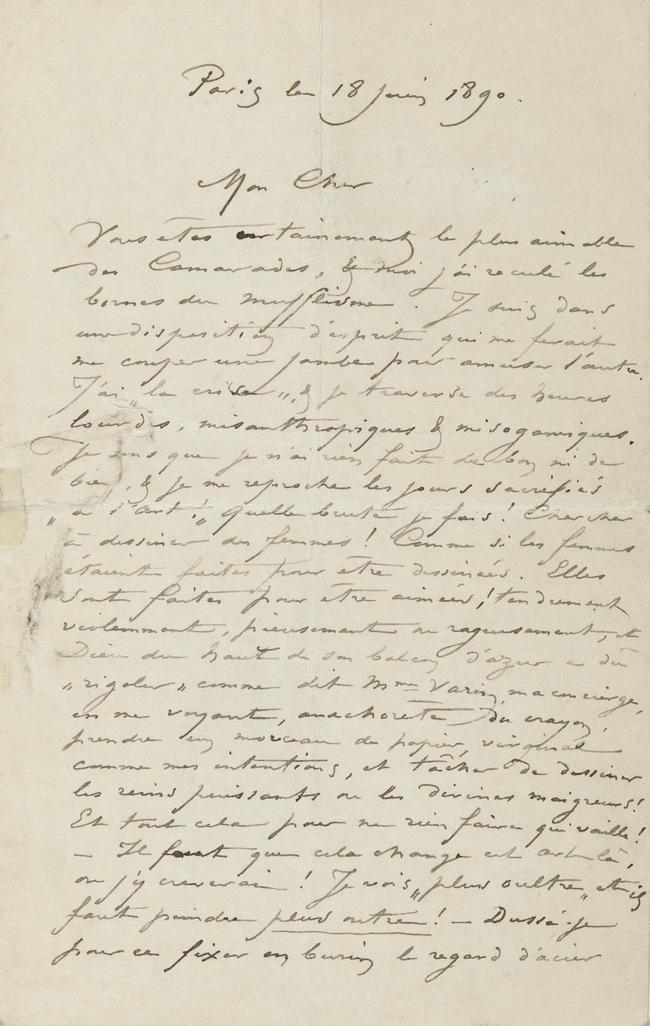 Paris le 18 Juin 1890.
Mon Cher
Vous êtes certainement le plus aimable
des Camarades, & moi j'ai reculé les
bornes du mufflisme. Je suis dans
une disposition d'esprit qui me ferait
me couper une jambe pour amuser l'autre.
J'ai „la crise„, & je traverse des heures
lourdes, misanthropiques & misogamiques.
Je sens que je n'ai rien fait de bon ni de
bien, & je me reproche les jours sacrifiés
„à l'art!„ quelle brute je fais! Chercher
à dessiner des femmes! Comme si les femmes
étaient faites pour être dessinées. Elles
sont faites pour être aimées! tendrement
violemment, pieusement ou rageusement, et
Dieu du haut de son balcon d'azur a dû
„rigoler„ comme dit Mme Varin, ma concierge,
en me voyant, anachorète du crayon,
prendre un morceau de papier, virginal
comme mes intentions, et tâcher de dessiner
les reins puissants ou les divines maigreurs!
Et tout cela pour ne rien faire qui vaille!
— Il faut que cela change cet art là,
ou j'y creverai! Je vois „plus oultre„ et il
faut peindre plus outre! — Dussé-je
pour ce fixer en burin le regard d'acier